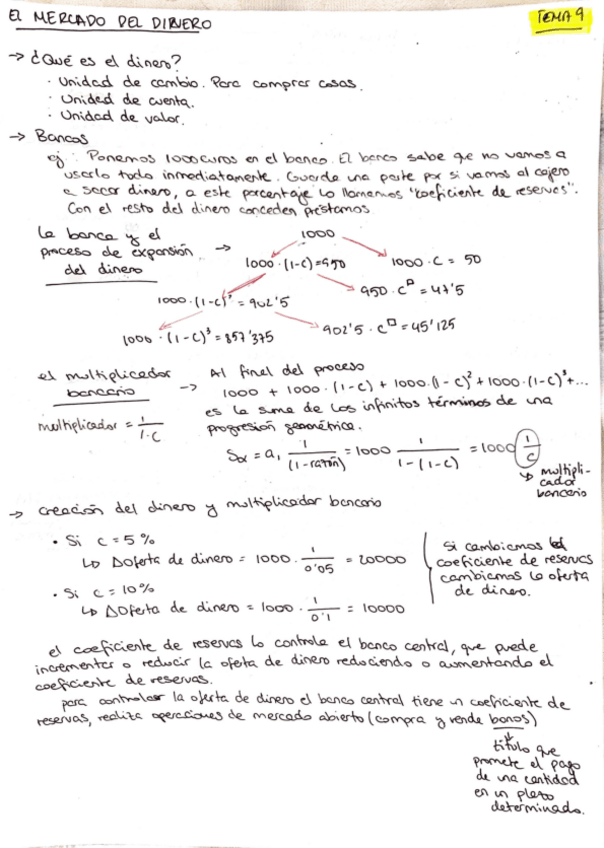 EL MERCADO DEL DINERO
TEMA 9
→ ¿Qué es el dinero?
· Unidad de cambio. Para comprar cosas.
· Unidad de cuenta.
· Unidad de valor.
→ Bancos
ej: Ponemos 1000euros en el banco. El banco sabe que no vamos a
usarlo todo inmediatamente. Guarda una parte por si vamos al cajero
a sacar dinero, a este porcentaje lo llamamos "coeficiente de reservas".
Con el resto del dinero conceden préstamos
La banca y el
proceso de expansión
del dinero
→
1000
1000·(1-c)=950
1000·c = 50
1000·(1-c)² = 902'5
950·c = 47'5
1000·(1-c)³ = 857'375
902'5·c = 45'125
el multiplicador
bancario
multiplicador = 1/1-c
→ Al final del proceso
1000 + 1000·(1-c) + 1000·(1-c)² + 1000·(1-c)³+...
es la suma de los infinitos términos de una
progresión geométrica.
S∞ = a₁ 1/(1-razón) = 1000 1/1-(1-c) = 1000 1/c
↳ multipli-
cador
bancario
→ creación del dinero y multiplicador bancario
• Si c = 5%
↳ ΔOferta de dinero = 1000 · 1/0'05 = 20000
• Si c = 10%
↳ ΔOferta de dinero = 1000 · 1/0'1 = 10000
Si cambiamos el
coeficiente de reservas
cambiamos la oferta
de dinero.
el coeficiente de reservas lo controla el banco central, que puede
incrementar o reducir la ofeta de dinero reduciendo o aumentando el
coeficiente de reservas.
para controlar la oferta de dinero el banco central tiene un coeficiente de
reservas, realiza operaciones de mercado abierto (compra y vende bonos)
↓
título que
promete el pago
de una cantidad
en un plazo
determinado.